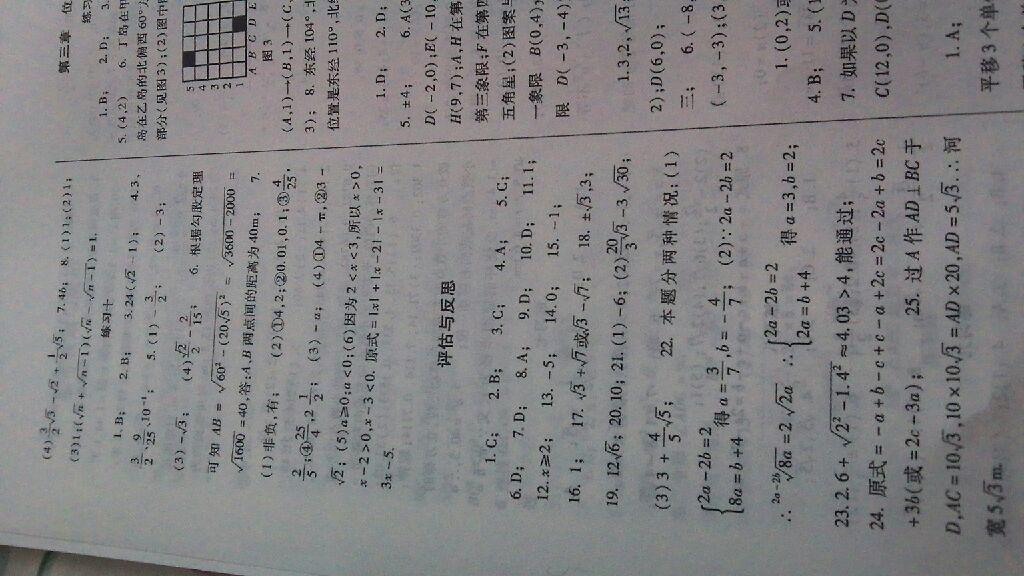 (4) 3/2√3-√2+1/2√5; 7.4b; 8. (1)1; (2)1;
(3)1; (√n+√n-1)(√n-√n-1)=1.
练习十
1. B; 2. B; 3.24(√2-1); 4.3,
3/2, 9/25, 10⁻¹; 5. (1)-3/2; (2)-3;
(3)-√3; (4)√2/2-2/15; 6. 根据勾股定理
可知 AB=√60²-(20√5)²=√3600-2000=
√1600=40,答:A,B两点间的距离为40m; 7.
(1)非负,有; (2)①4,2;②0.01,0.1;③4/25,
2/5;④25/4,2 1/2; (3)-a; (4)①4-π,②3-
√2; (5)a≥0;a<0;(6)因为2<x<3,所以x>0,
x-2>0,x-3<0. 原式=|x|+|x-2|-|x-3|=
3x-5.
评估与反思
1. C; 2. B; 3. C; 4. A; 5. C;
6. D; 7. D; 8. A; 9. D; 10. D; 11. 1;
12. x≥2; 13. -5; 14. 0; 15. -1;
16. 1; 17. √3+√7或√3-√7; 18. ±√3,3;
19. 12√6; 20. 10; 21. (1)-6; (2)20/3√3-3√30;
(3)3+4/5√5; 22. 本题分两种情况:(1)
{2a-2b=2 8a=b+4 得a=3/7,b=-4/7; (2)∵2a-2b=2
∴ ²ᵃ⁻²ᵇ√8a=2,√2a ∴{2a-2b=2 2a=b+4 得a=3,b=2;
23. 2.6+√2²-1.4²≈4.03>4,能通过;
24. 原式=-a+b-c+c-a+2c=2c-2a+b=2c
+3b(或=2c-3a); 25. 过A作AD⊥BC于
D,AC=10√3,10×10√3=AD×20,AD=5√3∴河
宽5√3m.
第三章 位
1. B; 2. D; 3.
5. (4,2) 6. 丁岛在甲
岛在乙岛的北偏西60°方
部分(见图3);(2)图书
5
4
3
2
1
A B C D E
图3
(A,1)→(B,1)→(C,
3); 8. 东经104°,北
位置是东经110°,北纬
1. D; 2. D;
5. ±4; 6. A(3
D(-2,0);E(-10,
H(9,7);A,H在第
第三象限;F在第四
五角星;(2)图案与
一象限 B(0,4),
限 D(-3,-4)
1.3,2,√13;
2);D(6,0);
三; 6. (-8,
(-3,-3);(3
1. (0,2)或
4. B; 5. (1
7. 如果以D为
C(12,0),D(0
1. A;
平移3个单位